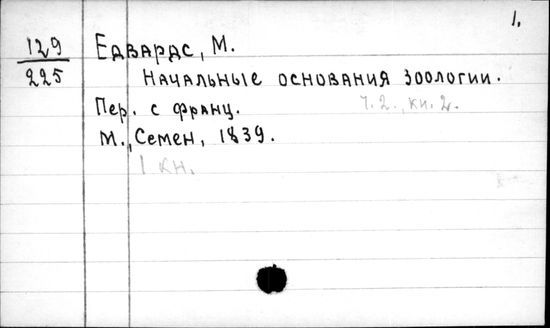 1.
129
225
Едвардс, М.
Начальные основания зоологии.
Пер. с франц. ч.2., кн. 2.
М., Семен, 1839.
1 кн.